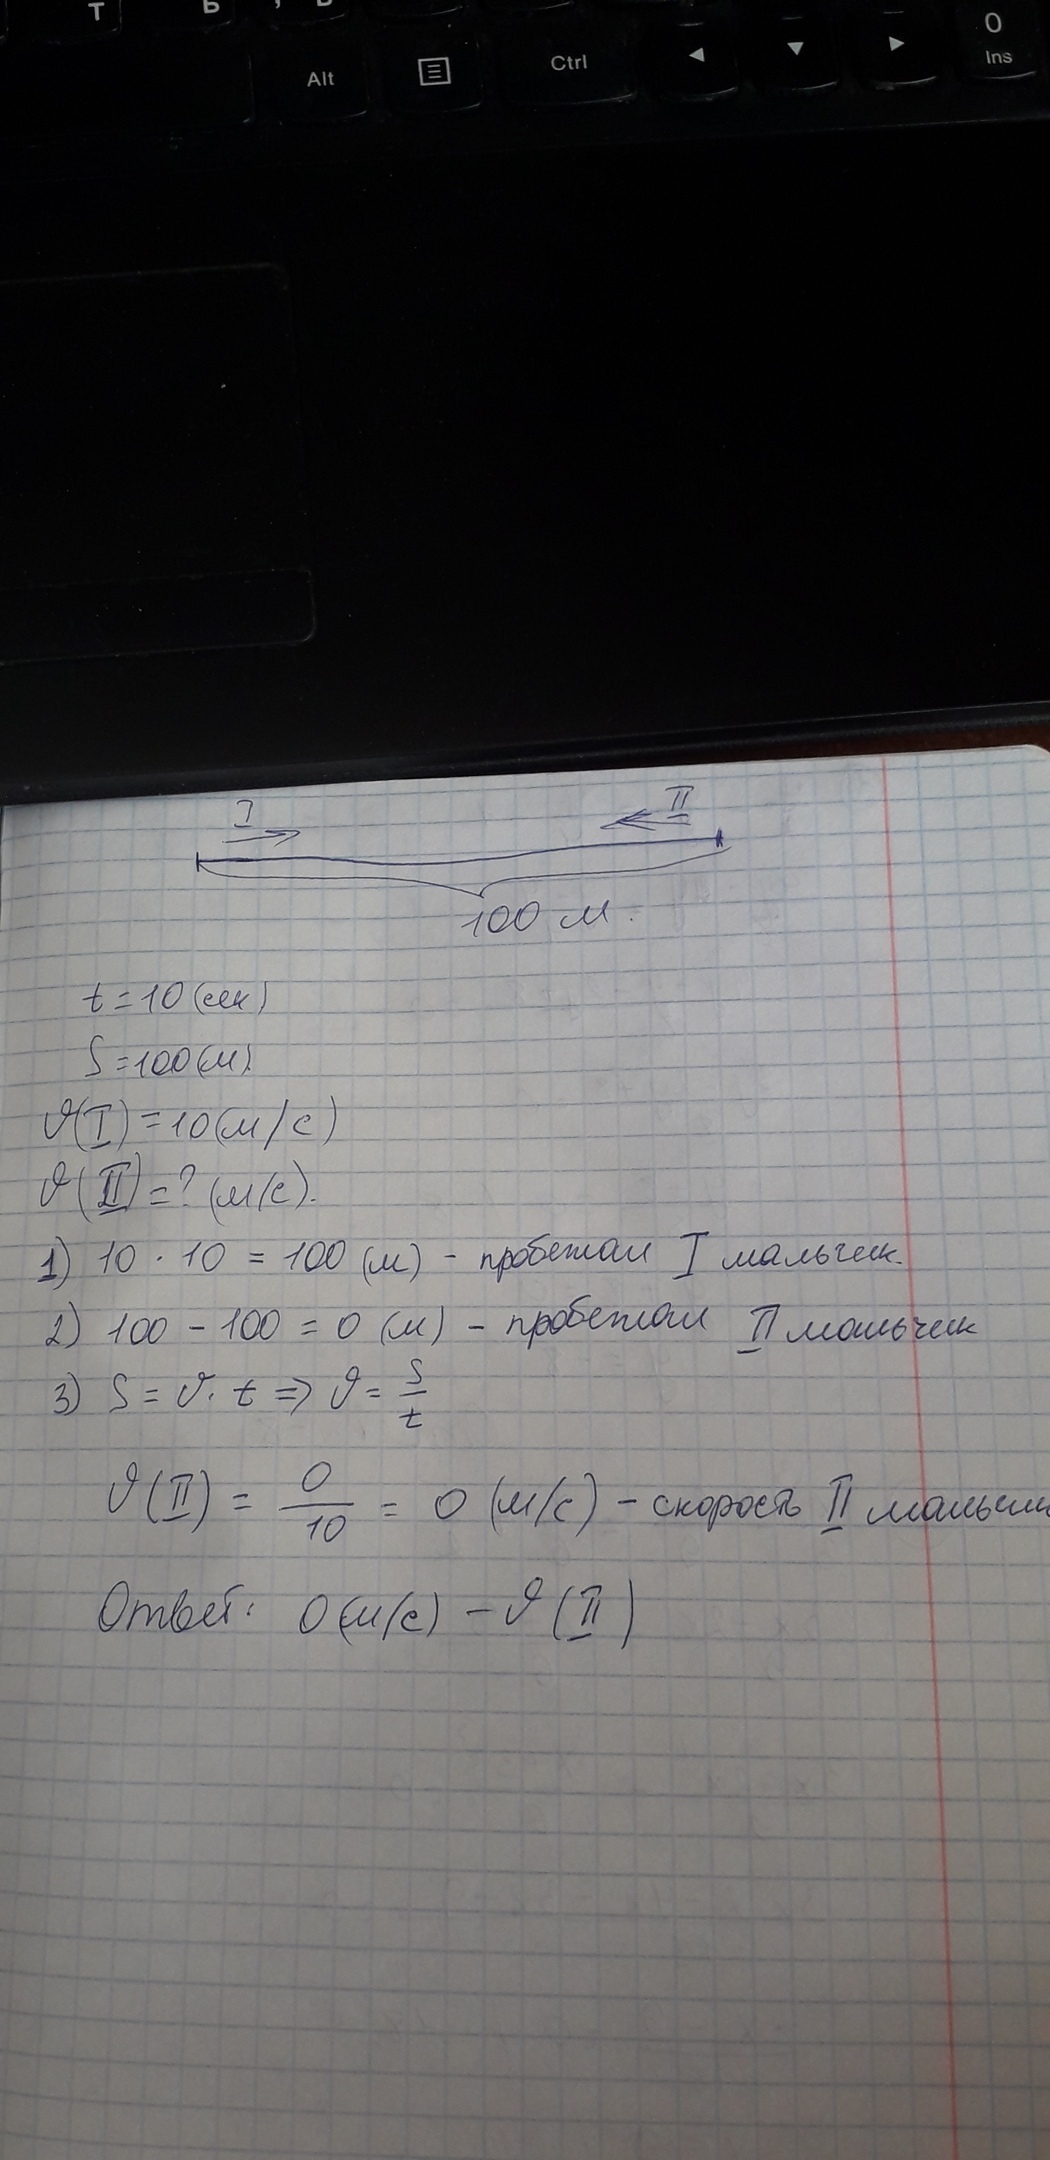 Т Б , Ь
Alt Ctrl ◄ ▼ ► 0 Ins
I II
100 м.
t = 10 (сек)
S = 100 (м)
𝜗(I) = 10 (м/с)
𝜗(II) = ? (м/с).
1) 10 · 10 = 100 (м) - пробежал I мальчик.
2) 100 - 100 = 0 (м) - пробежал II мальчик
3) S = 𝜗 · t => 𝜗 = S/t
𝜗(II) = 0/10 = 0 (м/с) - скорость II мальчик
Ответ: 0 (м/с) - 𝜗(II)